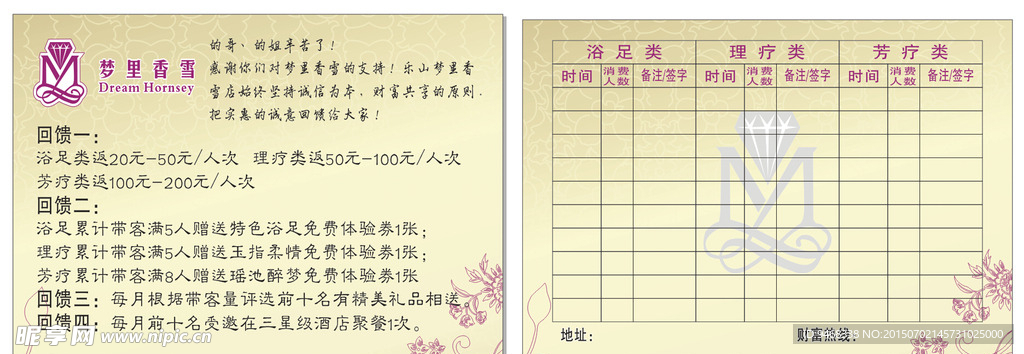 梦里香雪
Dream Hornsey
的哥、的姐辛苦了！
感谢你们对梦里香雪的支持！乐山梦里香
雪店始终坚持诚信为本，财富共享的原则.
把实惠的诚意回馈给大家！
回馈一：
浴足类返20元-50元/人次 理疗类返50元-100元/人次
芳疗类返100元-200元/人次
回馈二：
浴足累计带客满5人赠送特色浴足免费体验券1张；
理疗累计带客满5人赠送玉指柔情免费体验劵1张；
芳疗累计带客满8人赠送瑶池醉梦免费体验劵1张
回馈三：每月根据带客量评选前十名有精美礼品相送。
回馈四：每月前十名受邀在三星级酒店聚餐1次。
昵享网 www.nipic.cn
浴足类 理疗类 芳疗类
时间 消费人数 备注/签字 时间 消费人数 备注/签字 时间 消费人数 备注/签字
地址： 财富热线：
NO:20150702145731025000